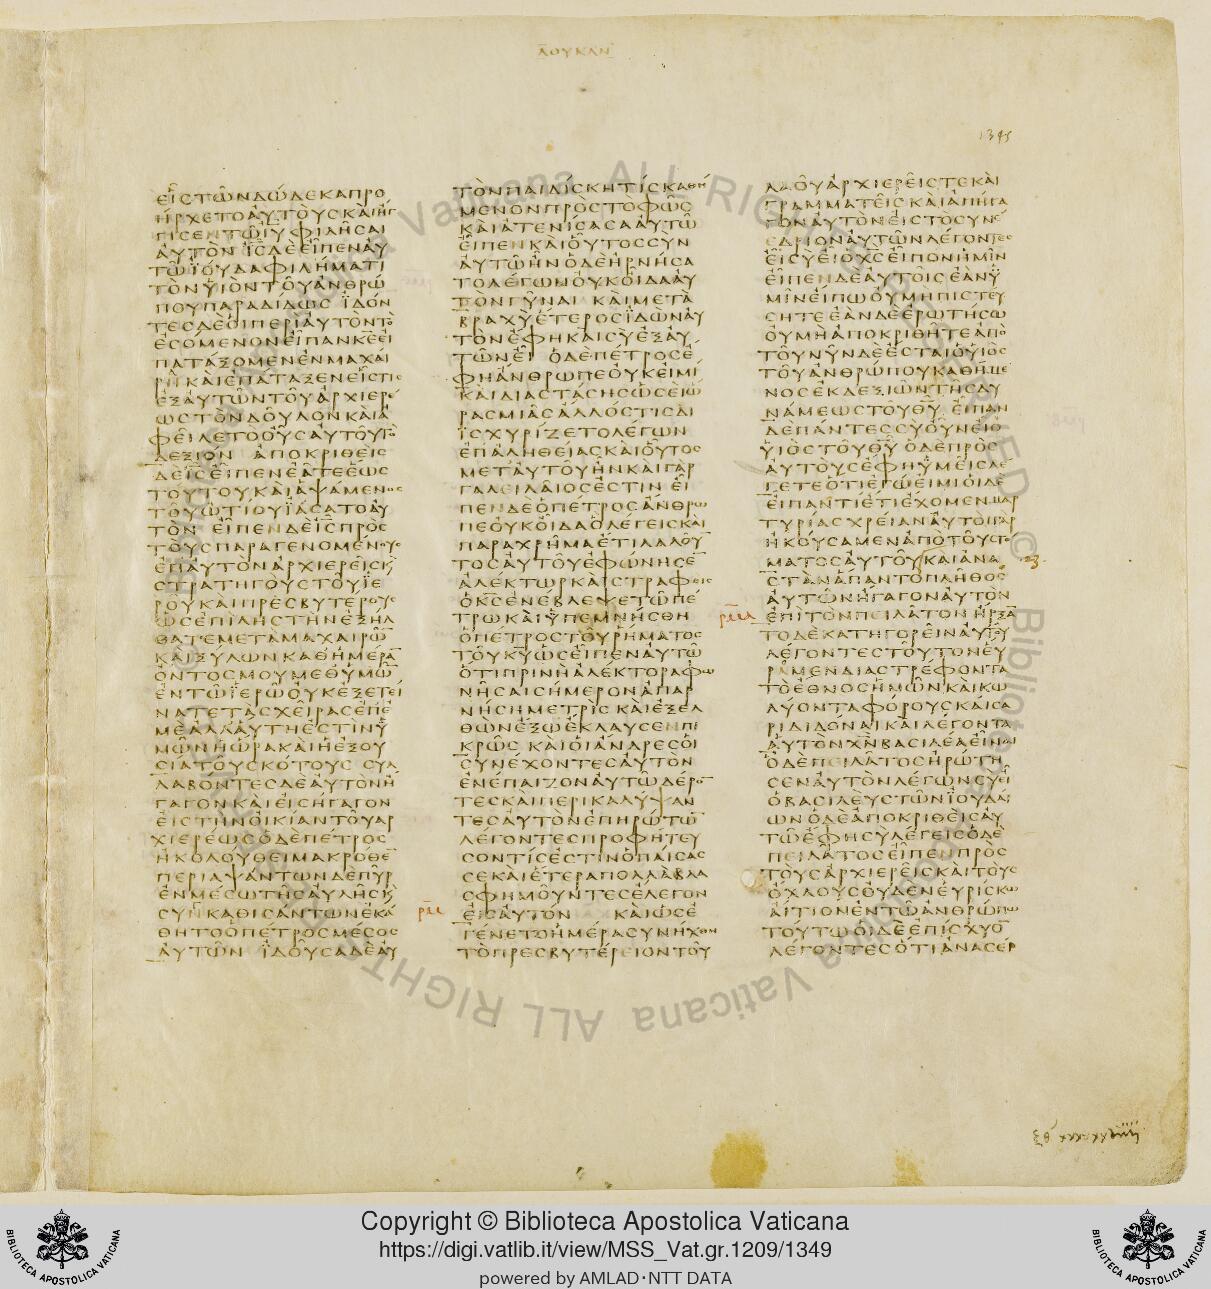 ΛΟΥΚΑΝ
1345
ΕΙΣ ΤΩΝ ΔΩΔΕΚΑ ΠΡΟ
ΗΡΧΕΤΟ ΑΥΤΟΥΣ ΚΑΙ ΗΓ
ΓΙΣΕΝ ΤΩ ΙΥ ΦΙΛΗΣΑΙ
ΑΥΤΟΝ ΙΣ ΔΕ ΕΙΠΕΝ ΑΥ
ΤΩ ΙΟΥΔΑ ΦΙΛΗΜΑΤΙ
ΤΟΝ ΥΙΟΝ ΤΟΥ ΑΝΘΡΩ
ΠΟΥ ΠΑΡΑΔΙΔΩΣ ΙΔΟΝ
ΤΕΣ ΔΕ ΟΙ ΠΕΡΙ ΑΥΤΟΝ ΤΟ
ΕΣΟΜΕΝΟΝ ΕΙΠΑΝ ΚΕ ΕΙ
ΠΑΤΑΞΟΜΕΝ ΕΝ ΜΑΧΑΙ
ΡΗ ΚΑΙ ΕΠΑΤΑΞΕΝ ΕΙΣ ΤΙΣ
ΕΞ ΑΥΤΩΝ ΤΟΥ ΑΡΧΙΕΡΕ
ΩΣ ΤΟΝ ΔΟΥΛΟΝ ΚΑΙ Α
ΦΕΙΛΕΤΟ ΟΥΣ ΑΥΤΟΥ ΤΟ
ΔΕΞΙΟΝ ΑΠΟΚΡΙΘΕΙΣ
ΔΕ ΙΣ ΕΙΠΕΝ ΕΑΤΕ ΕΩΣ
ΤΟΥΤΟΥ ΚΑΙ ΑΨΑΜΕΝΟΣ
ΤΟΥ ΩΤΙΟΥ ΙΑΣΑΤΟ ΑΥ
ΤΟΝ ΕΙΠΕΝ ΔΕ ΙΣ ΠΡΟΣ
ΤΟΥΣ ΠΑΡΑΓΕΝΟΜΕΝΟΥΣ
ΕΠ ΑΥΤΟΝ ΑΡΧΙΕΡΕΙΣ Κ
ΣΤΡΑΤΗΓΟΥΣ ΤΟΥ ΙΕ
ΡΟΥ ΚΑΙ ΠΡΕΣΒΥΤΕΡΟΥΣ
ΩΣ ΕΠΙ ΛΗΣΤΗΝ ΕΞΗΛ
ΘΑΤΕ ΜΕΤΑ ΜΑΧΑΙΡΩ
ΚΑΙ ΞΥΛΩΝ ΚΑΘ ΗΜΕΡΑ
ΟΝΤΟΣ ΜΟΥ ΜΕΘ ΥΜΩ
ΕΝ ΤΩ ΙΕΡΩ ΟΥΚ ΕΞΕΤΕΙ
ΝΑΤΕ ΤΑΣ ΧΕΙΡΑΣ ΕΠ Ε
ΜΕ ΑΛΛ ΑΥΤΗ ΕΣΤΙΝ Υ
ΜΩΝ Η ΩΡΑ ΚΑΙ Η ΕΞΟΥ
ΣΙΑ ΤΟΥ ΣΚΟΤΟΥΣ ΣΥΛ
ΛΑΒΟΝΤΕΣ ΔΕ ΑΥΤΟΝ Η
ΓΑΓΟΝ ΚΑΙ ΕΙΣΗΓΑΓΟΝ
ΕΙΣ ΤΗΝ ΟΙΚΙΑΝ ΤΟΥ ΑΡ
ΧΙΕΡΕΩΣ Ο ΔΕ ΠΕΤΡΟΣ
ΗΚΟΛΟΥΘΕΙ ΜΑΚΡΟΘΕ
ΠΕΡΙΑΨΑΝΤΩΝ ΔΕ ΠΥΡ
ΕΝ ΜΕΣΩ ΤΗΣ ΑΥΛΗΣ Κ
ΣΥΝΚΑΘΙΣΑΝΤΩΝ ΕΚΑ
ΘΗΤΟ Ο ΠΕΤΡΟΣ ΜΕΣΟΣ
ΑΥΤΩΝ ΙΔΟΥΣΑ ΔΕ ΑΥ
ΤΟΝ ΠΑΙΔΙΣΚΗ ΤΙΣ ΚΑΘΗ
ΜΕΝΟΝ ΠΡΟΣ ΤΟ ΦΩΣ
ΚΑΙ ΑΤΕΝΙΣΑΣΑ ΑΥΤΩ
ΕΙΠΕΝ ΚΑΙ ΟΥΤΟΣ ΣΥΝ
ΑΥΤΩ ΗΝ Ο ΔΕ ΗΡΝΗΣΑ
ΤΟ ΛΕΓΩΝ ΟΥΚ ΟΙΔΑ ΑΥ
ΤΟΝ ΓΥΝΑΙ ΚΑΙ ΜΕΤΑ
ΒΡΑΧΥ ΕΤΕΡΟΣ ΙΔΩΝ ΑΥ
ΤΟΝ ΕΦΗ ΚΑΙ ΣΥ ΕΞ ΑΥ
ΤΩΝ ΕΙ Ο ΔΕ ΠΕΤΡΟΣ Ε
ΦΗ ΑΝΘΡΩΠΕ ΟΥΚ ΕΙΜΙ
ΚΑΙ ΔΙΑΣΤΑΣΗΣ ΩΣΕΙ Ω
ΡΑΣ ΜΙΑΣ ΑΛΛΟΣ ΤΙΣ ΔΙ
ΙΣΧΥΡΙΖΕΤΟ ΛΕΓΩΝ
ΕΠ ΑΛΗΘΕΙΑΣ ΚΑΙ ΟΥΤΟΣ
ΜΕΤ ΑΥΤΟΥ ΗΝ ΚΑΙ ΓΑΡ
ΓΑΛΕΙΛΑΙΟΣ ΕΣΤΙΝ ΕΙ
ΠΕΝ ΔΕ Ο ΠΕΤΡΟΣ ΑΝΘΡΩ
ΠΕ ΟΥΚ ΟΙΔΑ Ο ΛΕΓΕΙΣ ΚΑΙ
ΠΑΡΑΧΡΗΜΑ ΕΤΙ ΛΑΛΟΥ
ΤΟΣ ΑΥΤΟΥ ΕΦΩΝΗΣΕ
ΑΛΕΚΤΩΡ ΚΑΙ ΣΤΡΑΦΕΙΣ
Ο ΚΣ ΕΝΕΒΛΕΨΕ ΤΩ ΠΕ
ΤΡΩ ΚΑΙ ΥΠΕΜΝΗΣΘΗ
Ο ΠΕΤΡΟΣ ΤΟΥ ΡΗΜΑΤΟΣ
ΤΟΥ ΚΥ ΩΣ ΕΙΠΕΝ ΑΥΤΩ
ΟΤΙ ΠΡΙΝ Η ΑΛΕΚΤΟΡΑ ΦΩ
ΝΗΣΑΙ ΣΗΜΕΡΟΝ ΑΠΑΡ
ΝΗΣΗ ΜΕ ΤΡΙΣ ΚΑΙ ΕΞΕΛ
ΘΩΝ ΕΞΩ ΕΚΛΑΥΣΕΝ ΠΙ
ΚΡΩΣ ΚΑΙ ΟΙ ΑΝΔΡΕΣ ΟΙ
ΣΥΝΕΧΟΝΤΕΣ ΑΥΤΟΝ
ΕΝΕΠΑΙΖΟΝ ΑΥΤΩ ΔΕΡΟ
ΤΕΣ ΚΑΙ ΠΕΡΙΚΑΛΥΨΑΝ
ΤΕΣ ΑΥΤΟΝ ΕΠΗΡΩΤΩ
ΛΕΓΟΝΤΕΣ ΠΡΟΦΗΤΕΥ
ΣΟΝ ΤΙΣ ΕΣΤΙΝ Ο ΠΑΙΣΑΣ
ΣΕ ΚΑΙ ΕΤΕΡΑ ΠΟΛΛΑ ΒΛΑ
ΣΦΗΜΟΥΝΤΕΣ ΕΛΕΓΟΝ
ΕΙΣ ΑΥΤΟΝ ΚΑΙ ΩΣ Ε
ΓΕΝΕΤΟ ΗΜΕΡΑ ΣΥΝΗΧΘΗ
ΤΟ ΠΡΕΣΒΥΤΕΡΕΙΟΝ ΤΟΥ
ΛΑΟΥ ΑΡΧΙΕΡΕΙΣ ΤΕ ΚΑΙ
ΓΡΑΜΜΑΤΕΙΣ ΚΑΙ ΑΠΗΓΑ
ΓΟΝ ΑΥΤΟΝ ΕΙΣ ΤΟ ΣΥΝΕ
ΔΡΙΟΝ ΑΥΤΩΝ ΛΕΓΟΝΤΕΣ
ΕΙ ΣΥ ΕΙ Ο ΧΣ ΕΙΠΟΝ ΗΜΙΝ
ΕΙΠΕΝ ΔΕ ΑΥΤΟΙΣ ΕΑΝ Υ
ΜΙΝ ΕΙΠΩ ΟΥ ΜΗ ΠΙΣΤΕΥ
ΣΗΤΕ ΕΑΝ ΔΕ ΕΡΩΤΗΣΩ
ΟΥ ΜΗ ΑΠΟΚΡΙΘΗΤΕ ΑΠΟ
ΤΟΥ ΝΥΝ ΔΕ ΕΣΤΑΙ Ο ΥΙΟΣ
ΤΟΥ ΑΝΘΡΩΠΟΥ ΚΑΘΗΜΕ
ΝΟΣ ΕΚ ΔΕΞΙΩΝ ΤΗΣ ΔΥ
ΝΑΜΕΩΣ ΤΟΥ ΘΥ ΕΙΠΑΝ
ΔΕ ΠΑΝΤΕΣ ΣΥ ΟΥΝ ΕΙ Ο
ΥΙΟΣ ΤΟΥ ΘΥ Ο ΔΕ ΠΡΟΣ
ΑΥΤΟΥΣ ΕΦΗ ΥΜΕΙΣ ΛΕ
ΓΕΤΕ ΟΤΙ ΕΓΩ ΕΙΜΙ ΟΙ ΔΕ
ΕΙΠΑΝ ΤΙ ΕΤΙ ΕΧΟΜΕΝ ΜΑΡ
ΤΥΡΙΑΣ ΧΡΕΙΑΝ ΑΥΤΟΙ ΓΑΡ
ΗΚΟΥΣΑΜΕΝ ΑΠΟ ΤΟΥ ΣΤΟ
ΜΑΤΟΣ ΑΥΤΟΥ ΚΑΙ ΑΝΑ
ΣΤΑΝ ΑΠΑΝ ΤΟ ΠΛΗΘΟΣ
ΑΥΤΩΝ ΗΓΑΓΟΝ ΑΥΤΟΝ
ΕΠΙ ΤΟΝ ΠΕΙΛΑΤΟΝ ΗΡΞΑ
ΤΟ ΔΕ ΚΑΤΗΓΟΡΕΙΝ ΑΥΤΟΥ
ΛΕΓΟΝΤΕΣ ΤΟΥΤΟΝ ΕΥ
ΡΑΜΕΝ ΔΙΑΣΤΡΕΦΟΝΤΑ
ΤΟ ΕΘΝΟΣ ΗΜΩΝ ΚΑΙ ΚΩ
ΛΥΟΝΤΑ ΦΟΡΟΥΣ ΚΑΙΣΑ
ΡΙ ΔΙΔΟΝΑΙ ΚΑΙ ΛΕΓΟΝΤΑ
ΑΥΤΟΝ ΧΝ ΒΑΣΙΛΕΑ ΕΙΝΑΙ
Ο ΔΕ ΠΕΙΛΑΤΟΣ ΗΡΩΤΗ
ΣΕΝ ΑΥΤΟΝ ΛΕΓΩΝ ΣΥ ΕΙ
Ο ΒΑΣΙΛΕΥΣ ΤΩΝ ΙΟΥΔΑΙ
ΩΝ Ο ΔΕ ΑΠΟΚΡΙΘΕΙΣ ΑΥ
ΤΩ ΕΦΗ ΣΥ ΛΕΓΕΙΣ Ο ΔΕ
ΠΕΙΛΑΤΟΣ ΕΙΠΕΝ ΠΡΟΣ
ΤΟΥΣ ΑΡΧΙΕΡΕΙΣ ΚΑΙ ΤΟΥΣ
ΟΧΛΟΥΣ ΟΥΔΕΝ ΕΥΡΙΣΚΩ
ΑΙΤΙΟΝ ΕΝ ΤΩ ΑΝΘΡΩΠΩ
ΤΟΥΤΩ ΟΙ ΔΕ ΕΠΙΣΧΥΟ
ΛΕΓΟΝΤΕΣ ΟΤΙ ΑΝΑΣΕΙ
Copyright © Biblioteca Apostolica Vaticana
https://digi.vatlib.it/view/MSS_Vat.gr.1209/1349
powered by AMLAD·NTT DATA
BIBLIOTECA APOSTOLICA VATICANA
BIBLIOTECA APOSTOLICA VATICANA